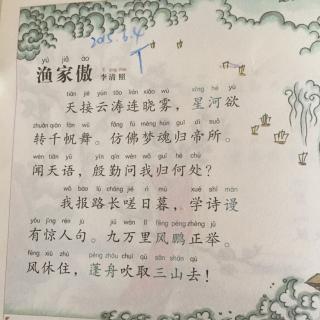 2015.6.4
yú jiā ào
渔家傲
李清照
tiān jiē yún tāo lián xiǎo wù xīng hé yù
天接云涛连晓雾，星河欲
zhuǎn qiān fān wǔ fǎng fú mèng hún guī dì suǒ
转千帆舞。仿佛梦魂归帝所。
wén tiān yǔ yīn qín wèn wǒ guī hé chù
闻天语，殷勤问我归何处？
wǒ bào lù cháng jiē rì mù xué shī màn
我报路长嗟日暮，学诗谩
yǒu jīng rén jù jiǔ wàn lǐ fēng péng zhèng jǔ
有惊人句。九万里风鹏正举。
fēng xiū zhù péng zhōu chuī qǔ sān shān qù
风休住，蓬舟吹取三山去！